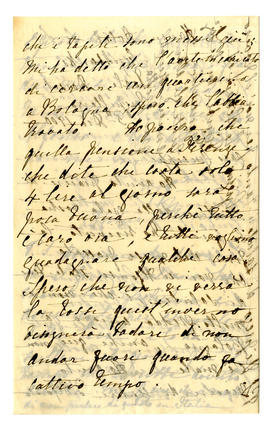 che i tapeti sono
mi ha detto che l'avete incaricato
di cercare un quartierino
a Bologna spero che l'abbia
trovato. che
quella pensione a Firenze
che dite che costa sole
4 lire al giorno sarà
poca buona, perchè tutto
è caro ora, e tutti vogliono
guadagnare qualche cosa
Spero che non vi verrà
la tosse quest'inverno
bisognerà badare di non
andar fuori quando fa
cattivo tempo.